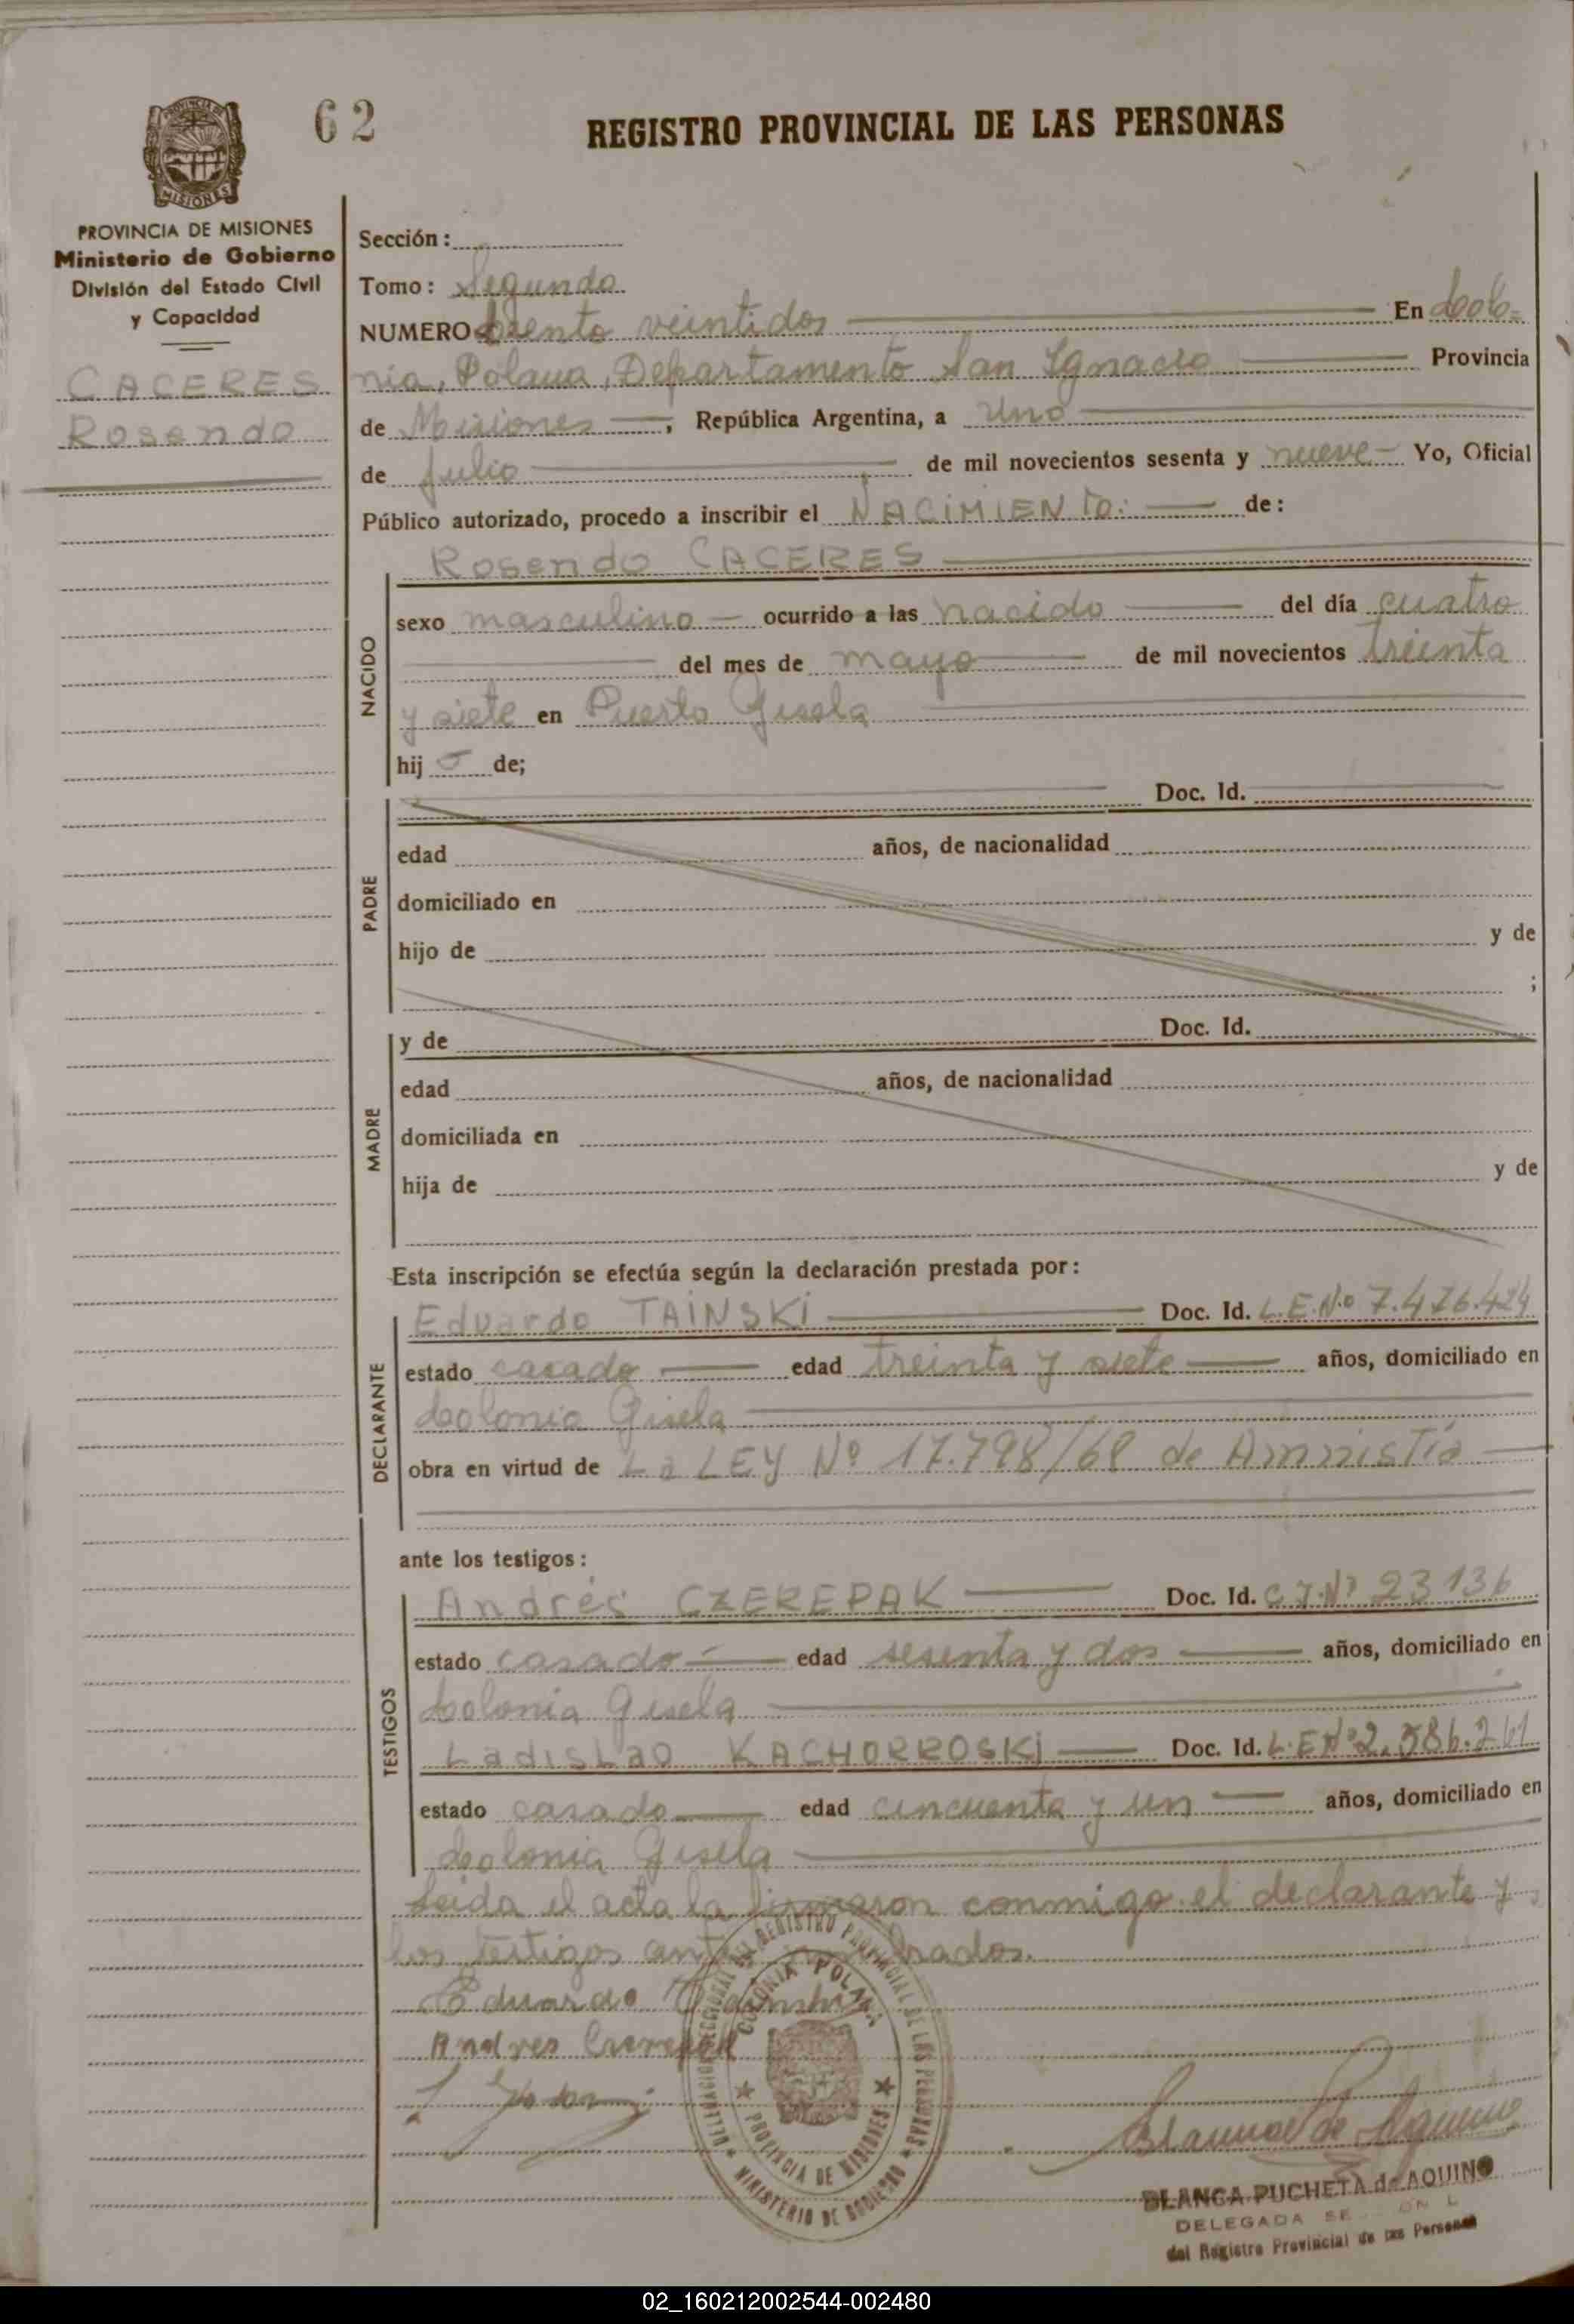 62
REGISTRO PROVINCIAL DE LAS PERSONAS
PROVINCIA DE MISIONES
MISIONES
PROVINCIA DE MISIONES
Ministerio de Gobierno
División del Estado Civil
y Capacidad
CACERES
Rosendo
Sección:
Tomo: Segundo
NUMERO Ciento veintidos En Colo=
nia, Polana, Departamento San Ignacio Provincia
de Misiones, República Argentina, a Uno
de Julio de mil novecientos sesenta y nueve Yo, Oficial
Público autorizado, procedo a inscribir el NACIMIENTO: de:
Rosendo CACERES
NACIDO
sexo masculino ocurrido a las nacido del día cuatro
del mes de mayo de mil novecientos treinta
y siete en Puerto Gisela
hij o de;
PADRE
Doc. Id.
edad años, de nacionalidad
domiciliado en
hijo de y de
;
MADRE
y de Doc. Id.
edad años, de nacionalidad
domiciliada en
hija de y de
Esta inscripción se efectúa según la declaración prestada por:
DECLARANTE
Eduardo TAINSKI Doc. Id. L.E.Nº 7.476.424
estado casado edad treinta y siete años, domiciliado en
Colonia Gisela
obra en virtud de La LEY Nº 17.798/68 de Amnistía
ante los testigos:
TESTIGOS
Andrés CZEREPAK Doc. Id. C.I.Nº 23136
estado casado edad sesenta y dos años, domiciliado en
Colonia Gisela
Ladislao KACHORROSKI Doc. Id. L.E.Nº 2.586.261
estado casado edad cincuenta y un años, domiciliado en
Colonia Gisela
Leida el acta la firmaron conmigo el declarante y
los testigos antes nombrados.
Eduardo Tainski
Andres Czerepak
DELEGACION SECCIONAL DEL REGISTRO PROVINCIAL DE LAS PERSONAS
COLONIA POLANA
PROVINCIA DE MISIONES
MINISTERIO DE GOBIERNO
Blanca P de Aquino
BLANCA PUCHETA de AQUINO
DELEGADA
del Registro Provincial de las Personas
02_160212002544-002480